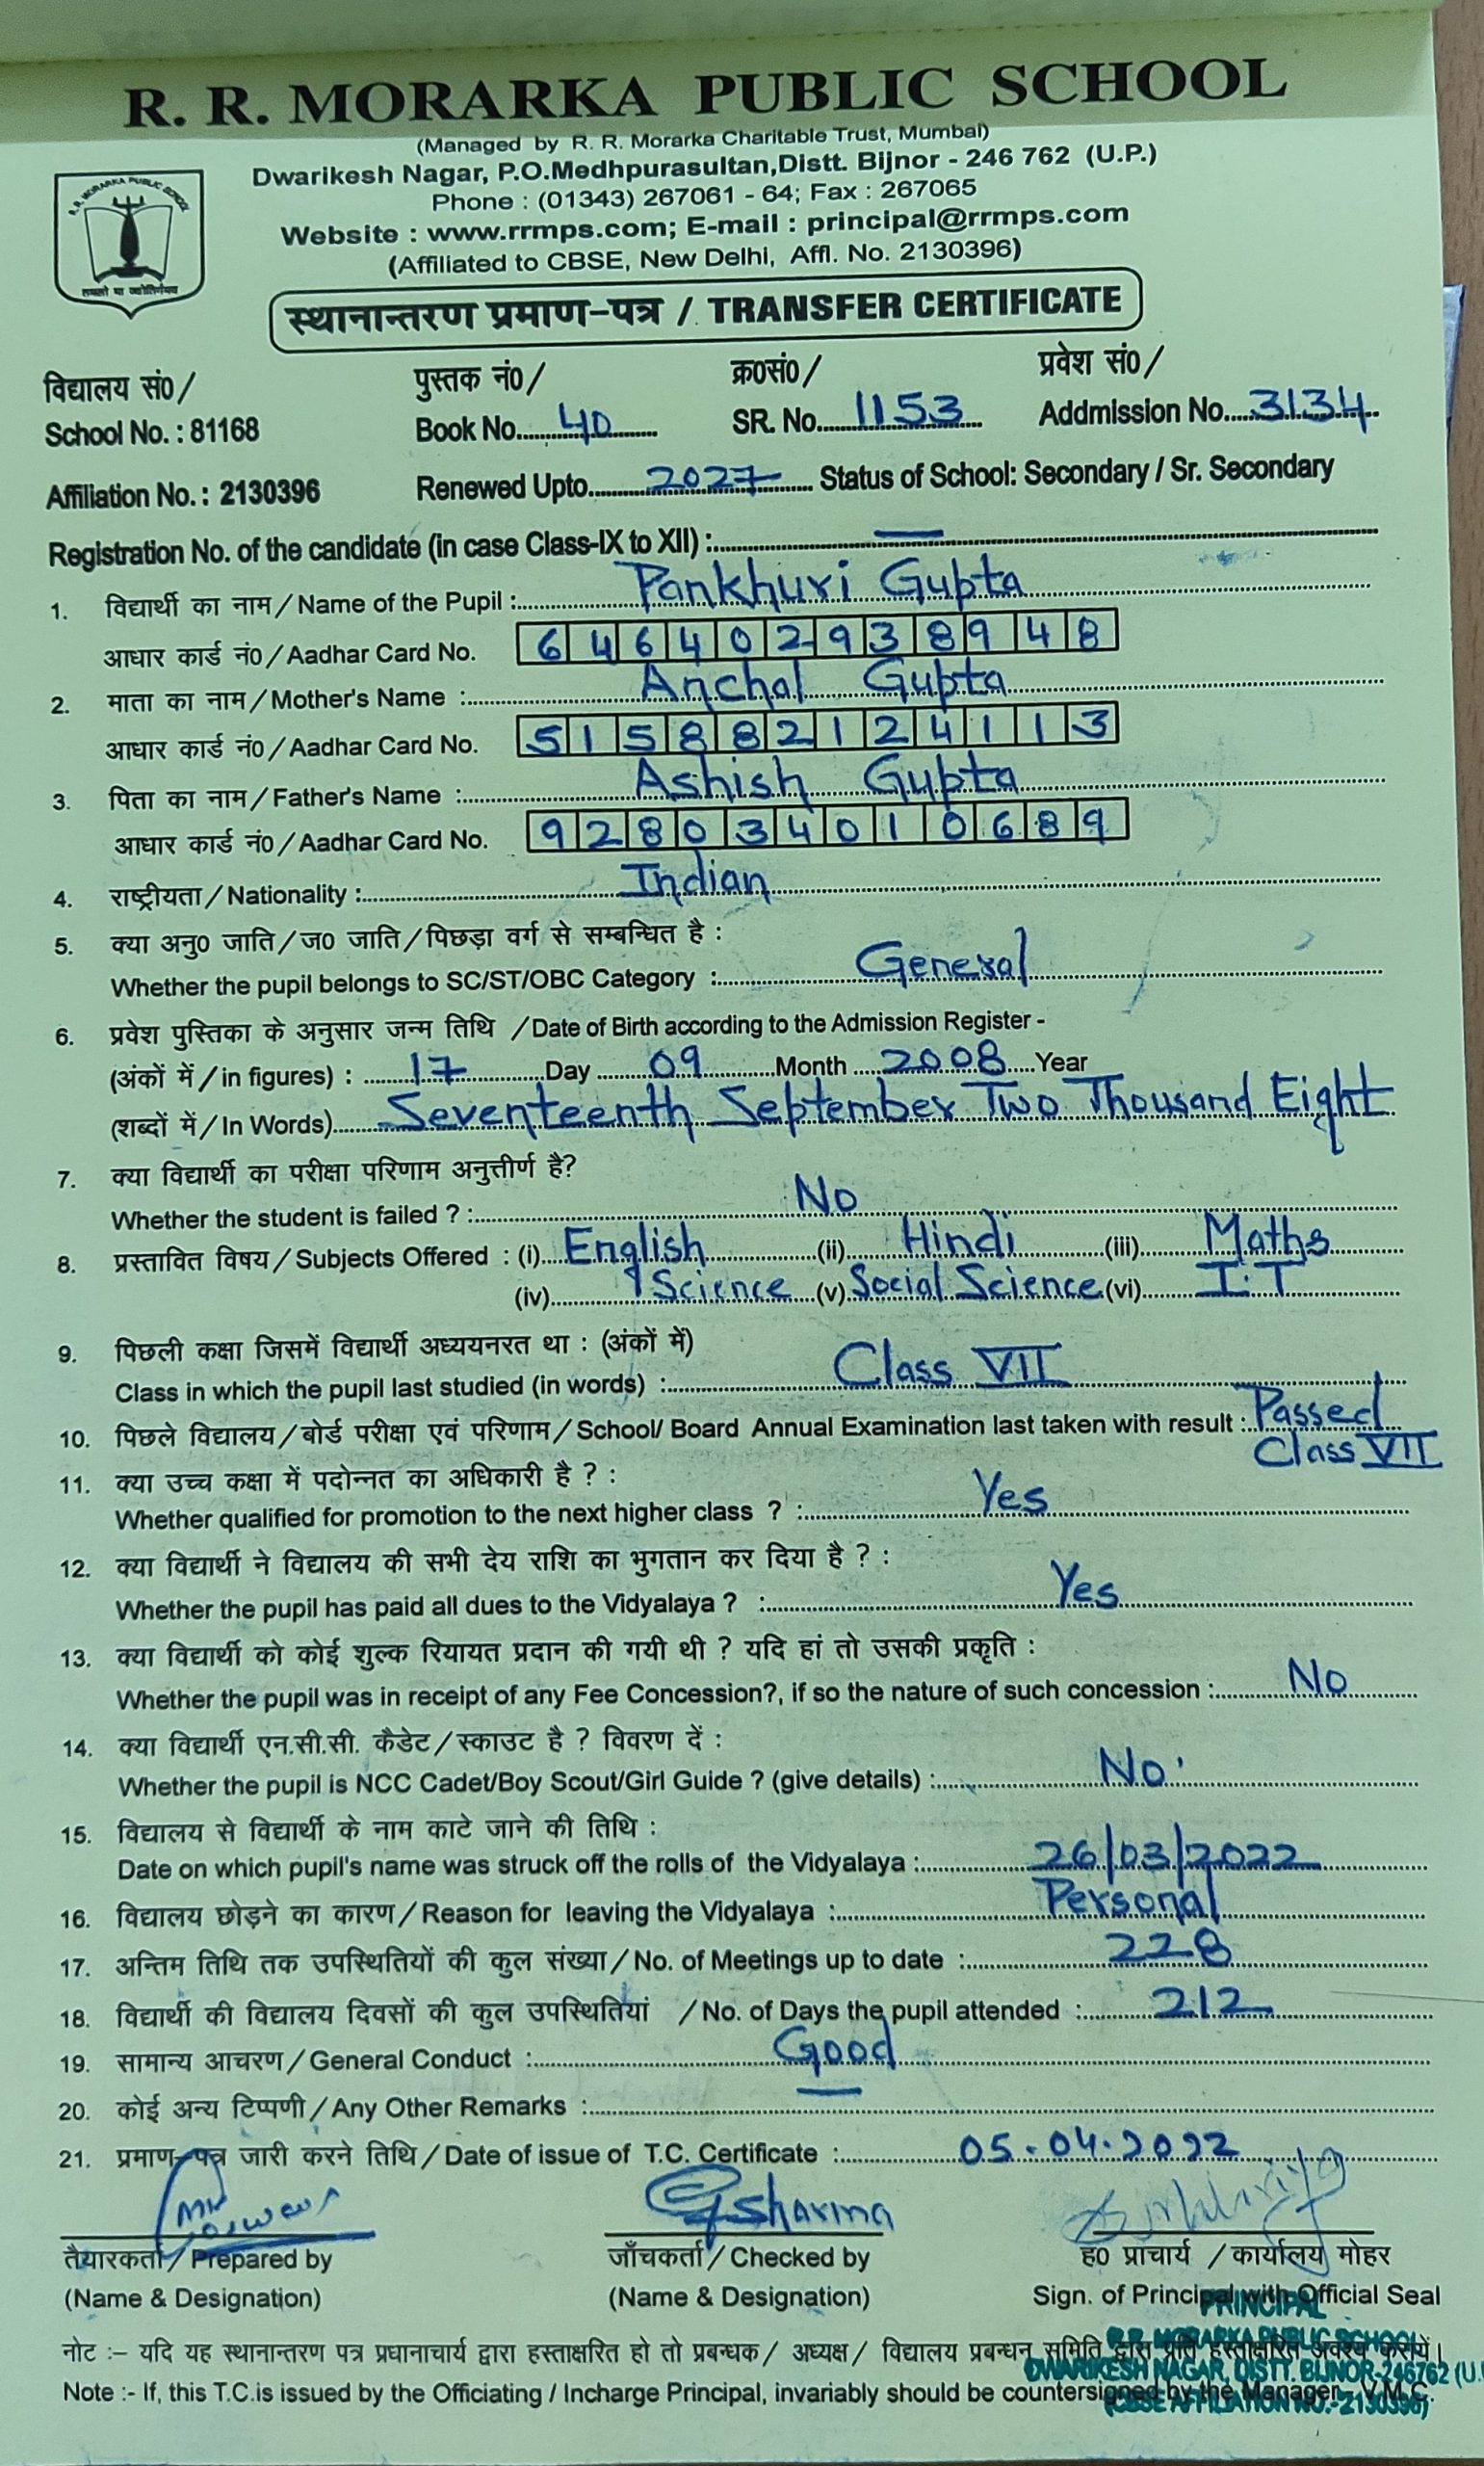 R. R. MORARKA PUBLIC SCHOOL
(Managed by R. R. Morarka Charitable Trust, Mumbai)
Dwarikesh Nagar, P.O.Medhpurasultan,Distt. Bijnor - 246 762 (U.P.)
Phone : (01343) 267061 - 64; Fax : 267065
Website : www.rrmps.com; E-mail : principal@rrmps.com
(Affiliated to CBSE, New Delhi, Affl. No. 2130396)
R.R. MORARKA PUBLIC SCHOOL
तमसो मा ज्योतिर्गमय
स्थानान्तरण प्रमाण-पत्र / TRANSFER CERTIFICATE
विद्यालय सं0/ पुस्तक नं0/ क्र0सं0/ प्रवेश सं0/
School No. : 81168 Book No. 40 SR. No. 1153 Addmission No. 3134
Affiliation No. : 2130396 Renewed Upto 2027 Status of School: Secondary / Sr. Secondary
Registration No. of the candidate (in case Class-IX to XII) : —
1. विद्यार्थी का नाम / Name of the Pupil : Pankhuri Gupta
आधार कार्ड नं0 / Aadhar Card No. 6 4 6 4 0 2 9 3 8 9 4 8
2. माता का नाम / Mother's Name : Anchal Gupta
आधार कार्ड नं0 / Aadhar Card No. 5 1 5 8 8 2 1 2 4 1 1 3
3. पिता का नाम / Father's Name : Ashish Gupta
आधार कार्ड नं0 / Aadhar Card No. 9 2 8 0 3 4 0 1 0 6 8 9
4. राष्ट्रीयता / Nationality : Indian
5. क्या अनु0 जाति / ज0 जाति / पिछड़ा वर्ग से सम्बन्धित है :
Whether the pupil belongs to SC/ST/OBC Category : General
6. प्रवेश पुस्तिका के अनुसार जन्म तिथि / Date of Birth according to the Admission Register -
(अंकों में / in figures) : 17 Day 09 Month 2008 Year
(शब्दों में / In Words) Seventeenth September Two Thousand Eight
7. क्या विद्यार्थी का परीक्षा परिणाम अनुत्तीर्ण है?
Whether the student is failed ? : No
8. प्रस्तावित विषय / Subjects Offered : (i) English (ii) Hindi (iii) Maths
(iv) Science (v) Social Science (vi) I.T
9. पिछली कक्षा जिसमें विद्यार्थी अध्ययनरत था : (अंकों में)
Class in which the pupil last studied (in words) : Class VII
10. पिछले विद्यालय / बोर्ड परीक्षा एवं परिणाम / School/ Board Annual Examination last taken with result : Passed
Class VII
11. क्या उच्च कक्षा में पदोन्नत का अधिकारी है ? :
Whether qualified for promotion to the next higher class ? : Yes
12. क्या विद्यार्थी ने विद्यालय की सभी देय राशि का भुगतान कर दिया है ? :
Whether the pupil has paid all dues to the Vidyalaya ? : Yes
13. क्या विद्यार्थी को कोई शुल्क रियायत प्रदान की गयी थी ? यदि हां तो उसकी प्रकृति :
Whether the pupil was in receipt of any Fee Concession?, if so the nature of such concession : No
14. क्या विद्यार्थी एन.सी.सी. कैडेट / स्काउट है ? विवरण दें :
Whether the pupil is NCC Cadet/Boy Scout/Girl Guide ? (give details) : No
15. विद्यालय से विद्यार्थी के नाम काटे जाने की तिथि :
Date on which pupil's name was struck off the rolls of the Vidyalaya : 26/03/2022
16. विद्यालय छोड़ने का कारण / Reason for leaving the Vidyalaya : Personal
17. अन्तिम तिथि तक उपस्थितियों की कुल संख्या / No. of Meetings up to date : 228
18. विद्यार्थी की विद्यालय दिवसों की कुल उपस्थितियां / No. of Days the pupil attended : 212
19. सामान्य आचरण / General Conduct : Good
20. कोई अन्य टिप्पणी / Any Other Remarks : —
21. प्रमाण-पत्र जारी करने तिथि / Date of issue of T.C. Certificate : 05.04.2022
Sharma
तैयारकर्ता / Prepared by जाँचकर्ता / Checked by ह0 प्राचार्य / कार्यालय मोहर
(Name & Designation) (Name & Designation) Sign. of Principal with Official Seal
PRINCIPAL
R.R. MORARKA PUBLIC SCHOOL
DWARIKESH NAGAR, DISTT. BIJNOR-246762 (U.
(CBSE AFFILIATION NO.-2130396)
नोट :- यदि यह स्थानान्तरण पत्र प्रधानाचार्य द्वारा हस्ताक्षरित हो तो प्रबन्धक / अध्यक्ष / विद्यालय प्रबन्धन समिति द्वारा प्रति हस्ताक्षरित अवश्य करायें।
Note :- If, this T.C.is issued by the Officiating / Incharge Principal, invariably should be countersigned by the Manager, V.M.C.